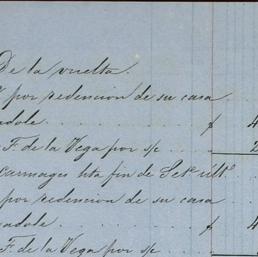 De la vuelta.
por redencion de su casa
ndole. $ 4
F. de la Vega por s/p 2
carruages hta fin de Sete. ultº
por redencion de su casa
ndole. $ 4
F. de la Vega por s/p